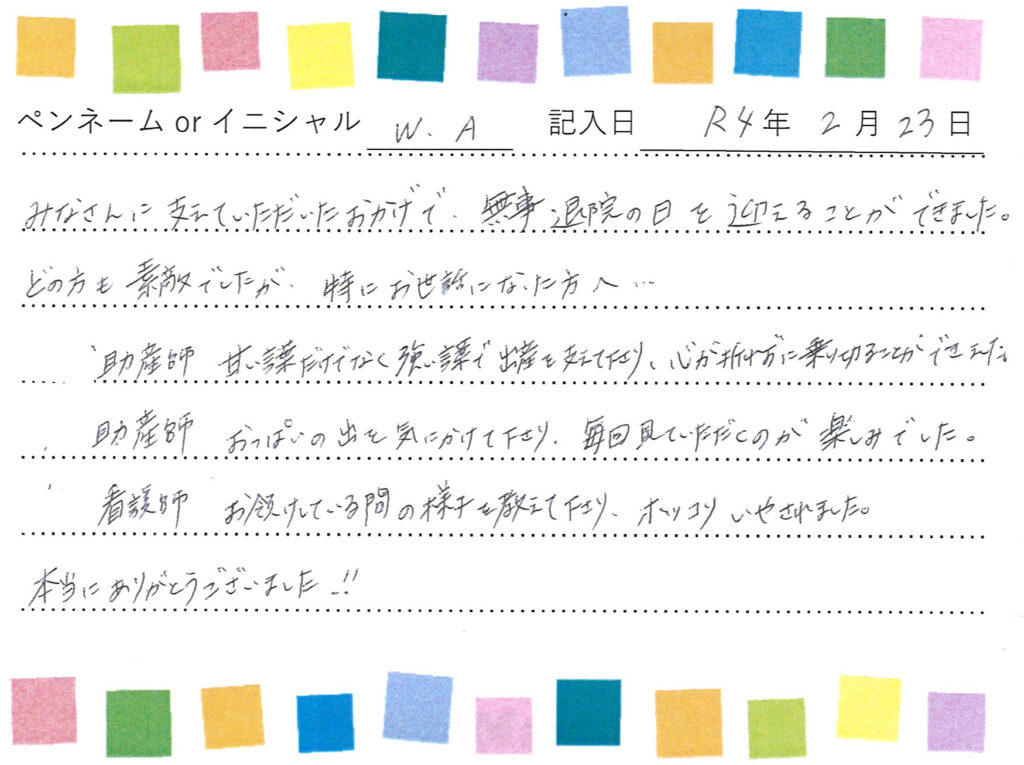 ペンネーム or イニシャル W. A 記入日 R4年 2月 23日
みなさんに支えていただいたおかげで、無事退院の日を迎えることができました。
どの方も素敵でしたが、特にお世話になった方へ…
助産師 甘い言葉だけでなく強い言葉で出産を支えて下さり、心が折れずに乗り切ることができました。
助産師 おっぱいの出を気にかけて下さり、毎回見ていただくのが楽しみでした。
看護師 お預けしている間の様子を教えて下さり、ホッコリいやされました。
本当にありがとうございました!!